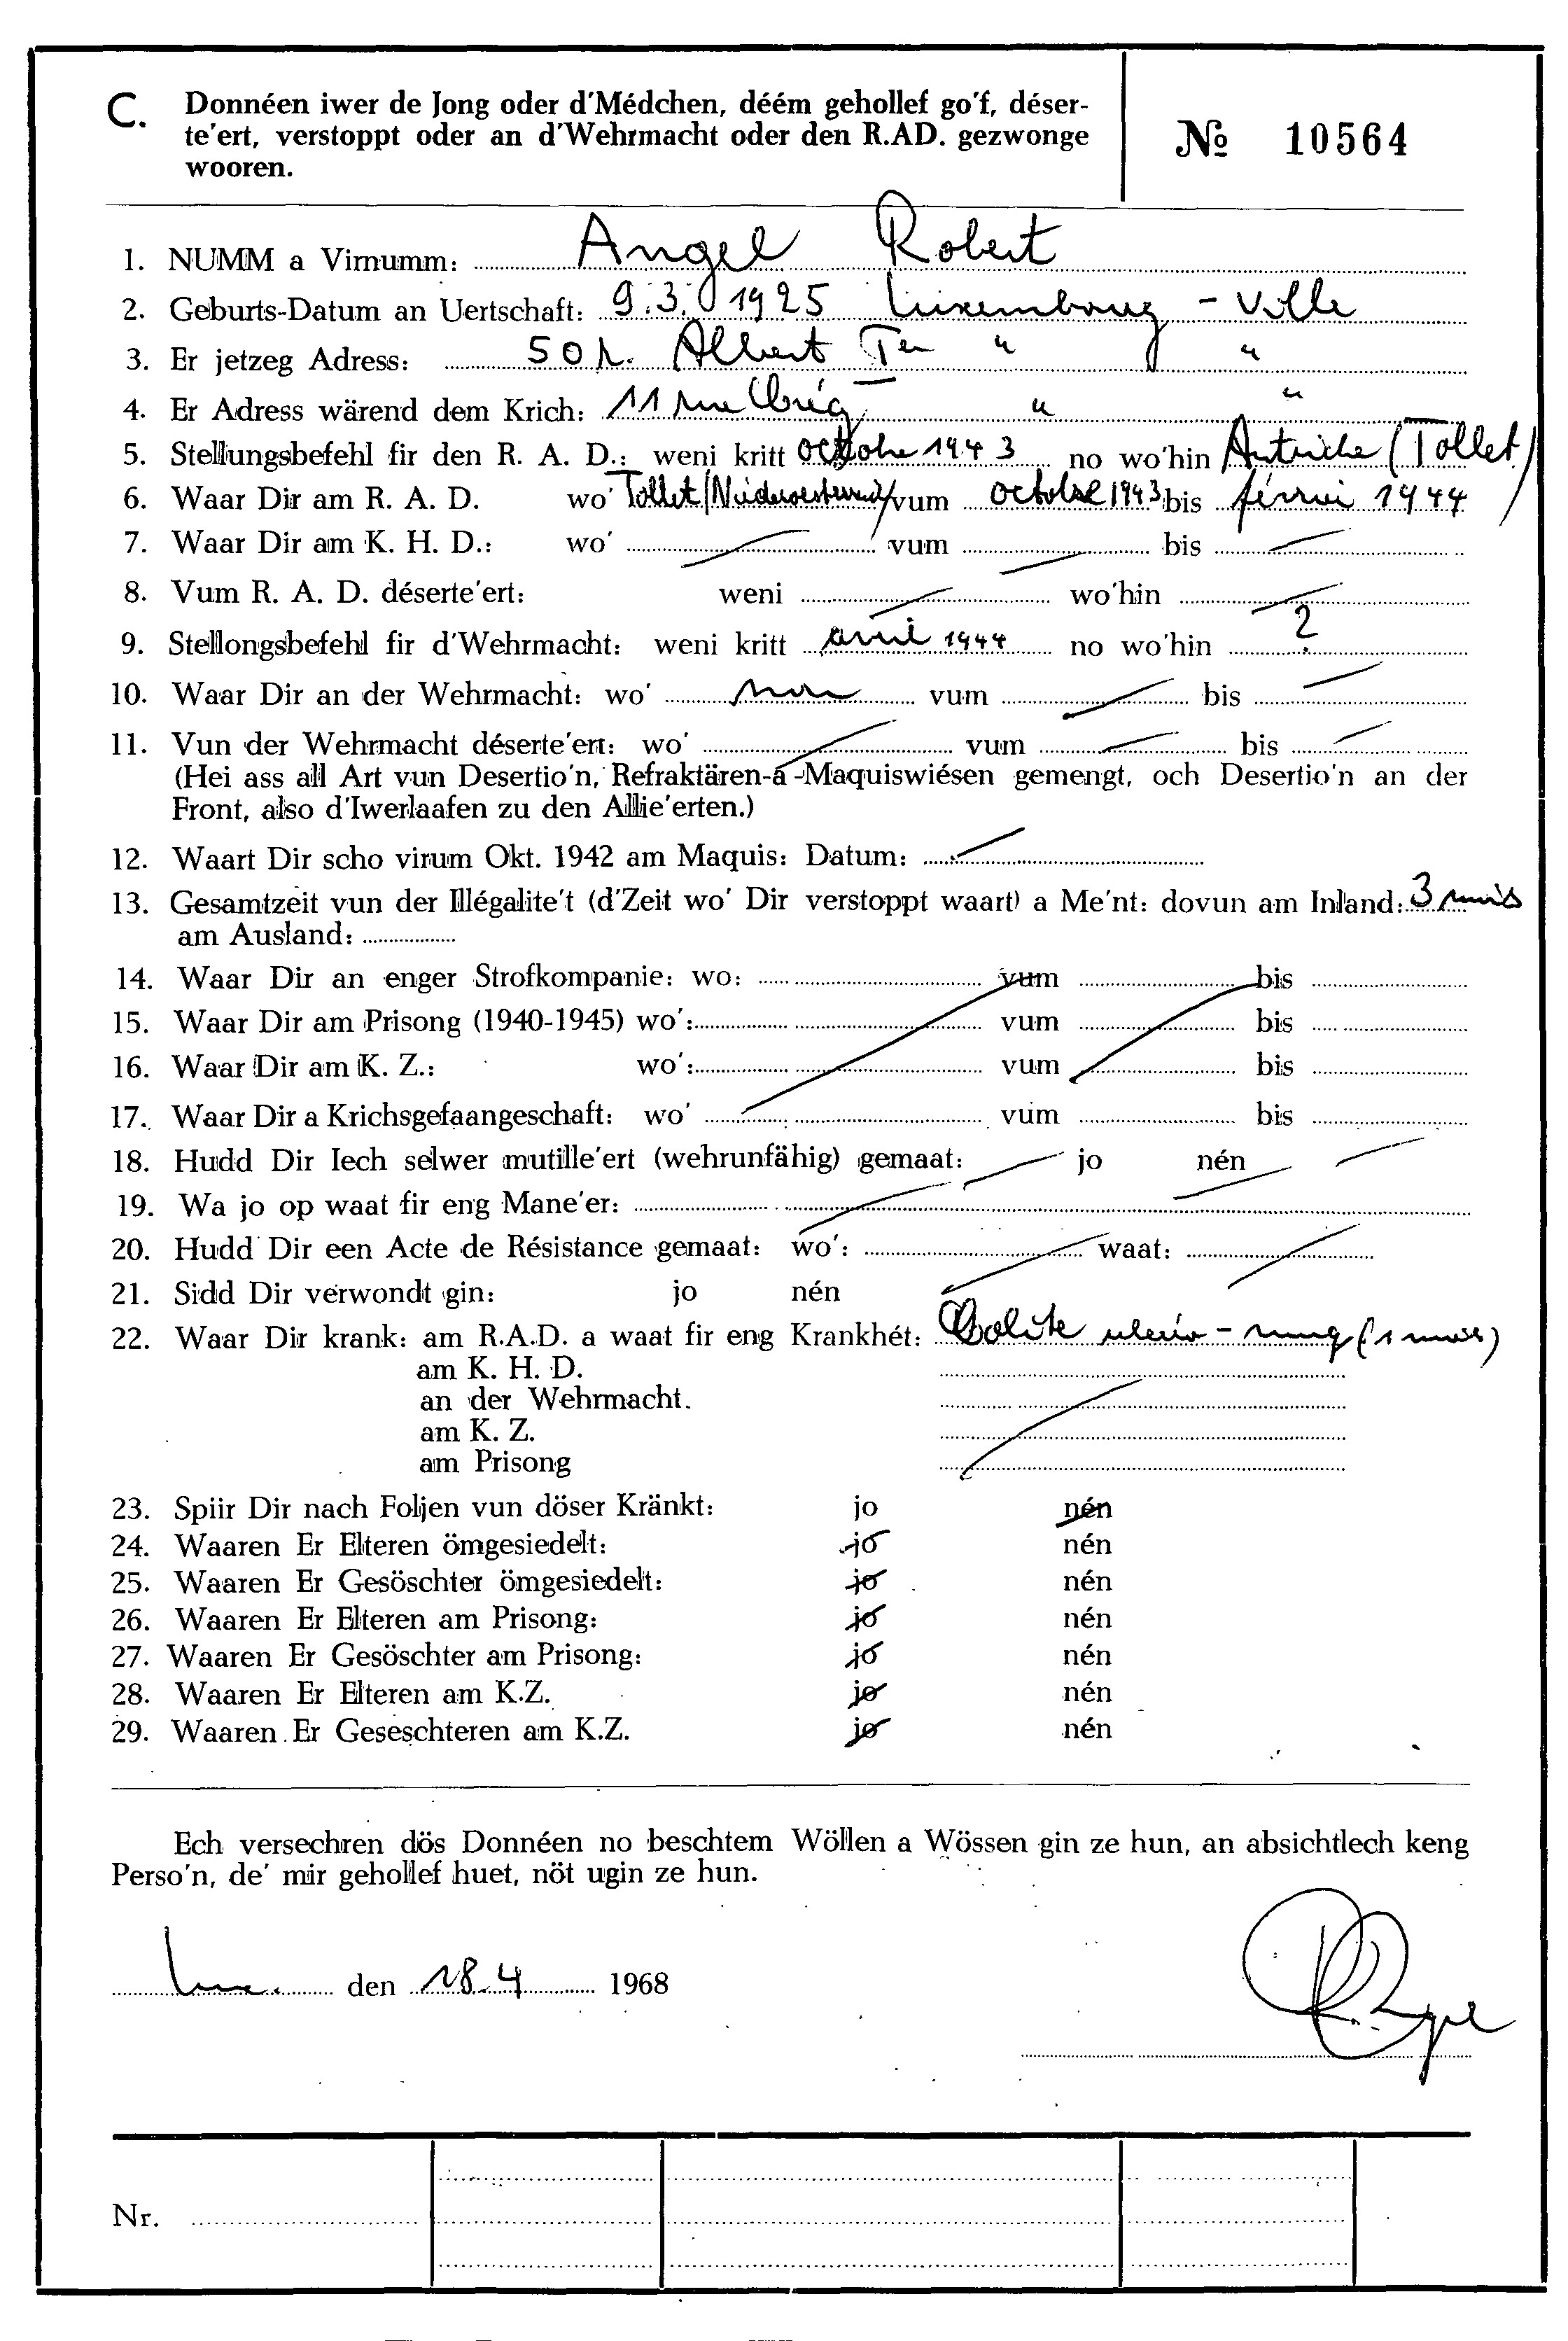 C. Donnéen iwer de Jong oder d'Médchen, déém gehollef go'f, déser-
te'ert, verstoppt oder an d'Wehrmacht oder den R.AD. gezwonge
wooren.
№ 10564
1. NUMM a Virnumm: Angel Robert
2. Geburts-Datum an Uertschaft: 9.3.1925 Luxembourg - Ville
3. Er jetzeg Adress: 50 r. Albert Ier " "
4. Er Adress wärend dem Krich: 11 rue " "
5. Stellungsbefehl fir den R. A. D.: weni kritt octobre 1943 no wo'hin Autriche (Tollet)
6. Waar Dir am R. A. D. wo' Tollet/Niederoesterreich/ vum octobre 1943 bis février 1944
7. Waar Dir am K. H. D.: wo' vum bis
8. Vum R. A. D. déserte'ert: weni wo'hin
9. Stellongsbefehl fir d'Wehrmacht: weni kritt avril 1944 no wo'hin ?
10. Waar Dir an der Wehrmacht: wo' non vum bis
11. Vun der Wehrmacht déserte'ert: wo' vum bis
(Hei ass all Art vun Desertio'n, Refraktären-a -Maquiswiésen gemengt, och Desertio'n an der
Front, also d'Iwerlaafen zu den Allie'erten.)
12. Waart Dir scho virum Okt. 1942 am Maquis: Datum:
13. Gesamtzeit vun der Illégalite't (d'Zeit wo' Dir verstoppt waart) a Me'nt: dovun am Inland: 3 mois
am Ausland:
14. Waar Dir an enger Strofkompanie: wo: vum bis
15. Waar Dir am Prisong (1940-1945) wo': vum bis
16. Waar Dir am K. Z.: wo': vum bis
17. Waar Dir a Krichsgefaangeschaft: wo' vum bis
18. Hudd Dir Iech selwer mutille'ert (wehrunfähig) gemaat: jo nén
19. Wa jo op waat fir eng Mane'er:
20. Hudd Dir een Acte de Résistance gemaat: wo': waat:
21. Sidd Dir verwondt gin: jo nén
22. Waar Dir krank: am R.A.D. a waat fir eng Krankhét: Colite (1 mois)
am K. H. D.
an der Wehrmacht.
am K. Z.
am Prisong
23. Spiir Dir nach Foljen vun döser Kränkt: jo nén
24. Waaren Er Elteren ömgesiedelt: jo nén
25. Waaren Er Gesöschter ömgesiedelt: jo nén
26. Waaren Er Elteren am Prisong: jo nén
27. Waaren Er Gesöschter am Prisong: jo nén
28. Waaren Er Elteren am K.Z. jo nén
29. Waaren Er Geseschteren am K.Z. jo nén
Ech versechren dös Donnéen no beschtem Wöllen a Wössen gin ze hun, an absichtlech keng
Perso'n, de' mir gehollef huet, nöt ugin ze hun.
Lux. den 18.4 1968
Nr.